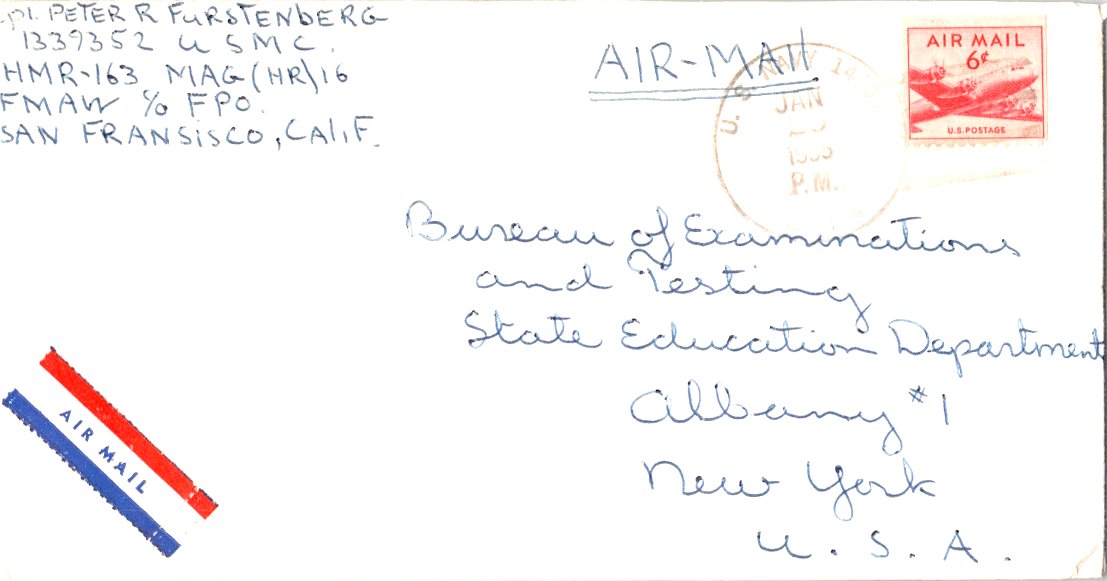 Cpl. PETER R FURSTENBERG
1339352 U S M C.
HMR-163 MAG(HR)16
FMAW c/o FPO.
SAN FRANSISCO, CALIF.
AIR-MAIL
U. S. NAVY 14
JAN
P.M.
AIR MAIL
6¢
U.S. POSTAGE
Bureau of Examinations
and Testing
State Education Department
Albany #1
New York
U. S. A.
AIR MAIL